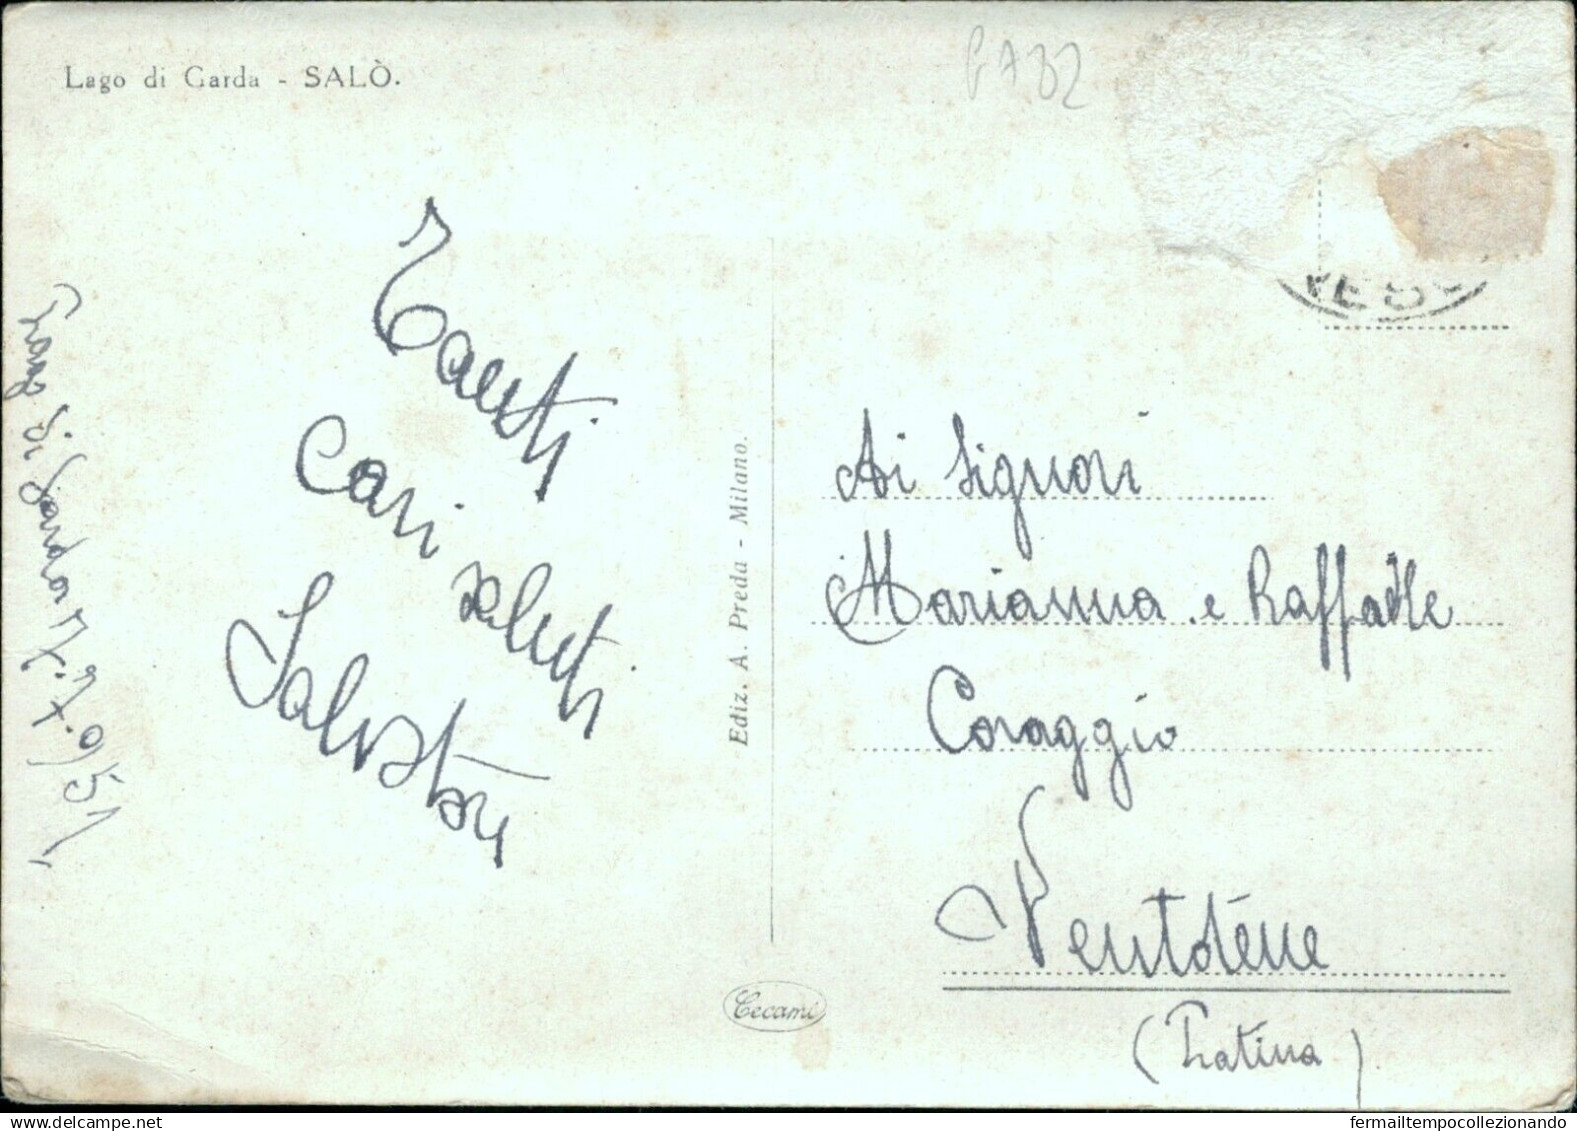 Lago di Garda - SALÒ.
Tanti
Cari saluti
Salvatore
di Garda 7.7.951
Ediz. A. Preda - Milano.
Cecami
Ai Signori
Marianna e Raffaele
Coraggio
Ventotene
(Latina)
fermailtempocollezionando